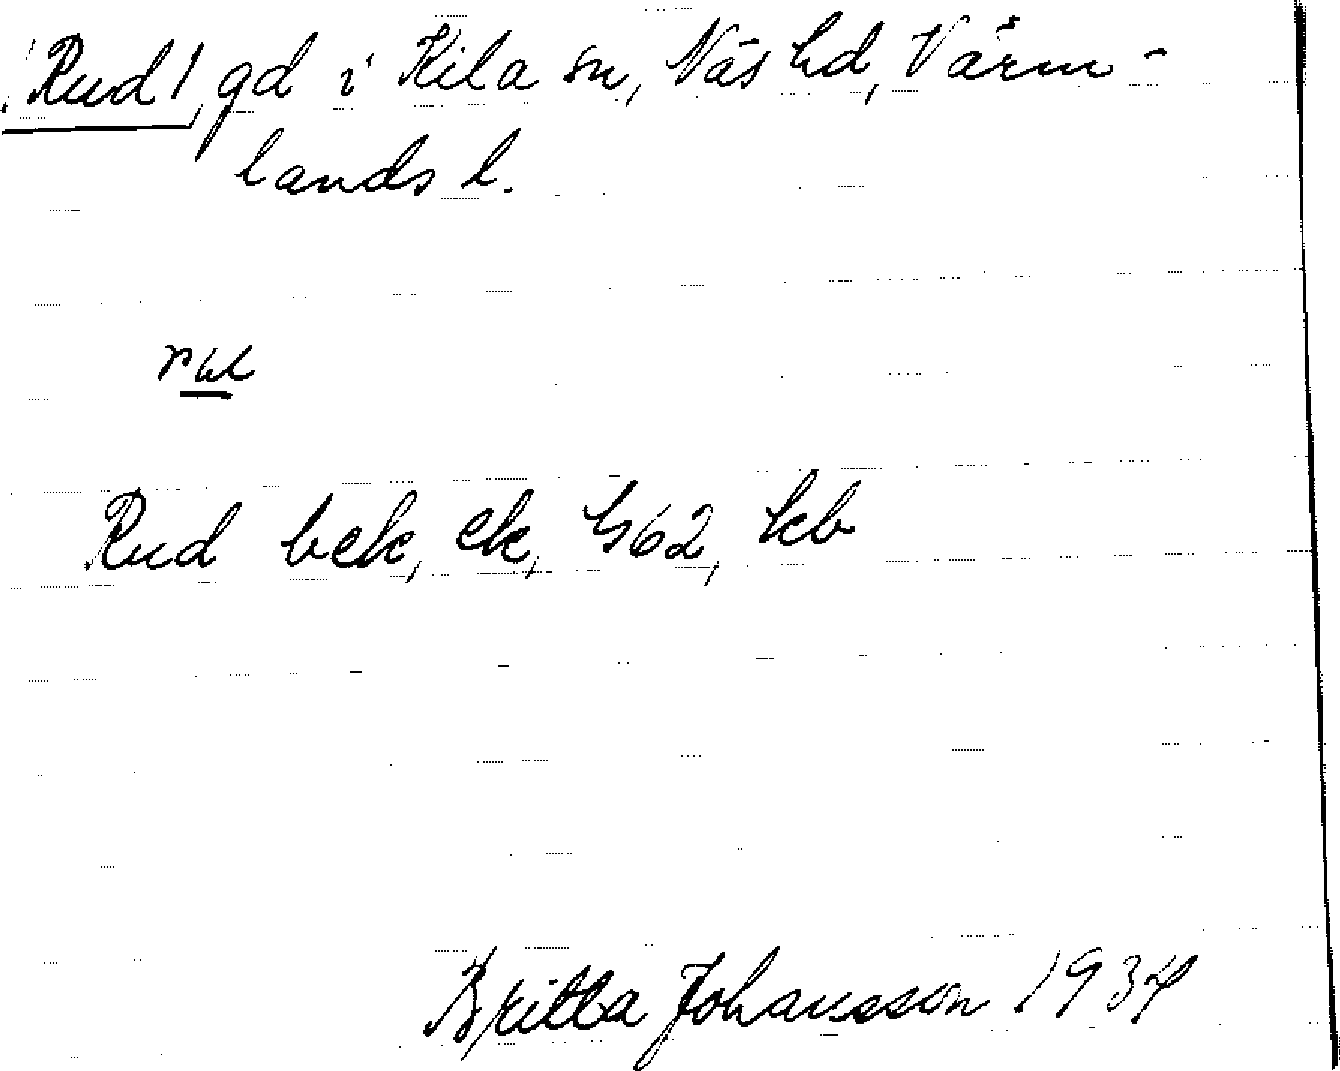 Rud!, gd i Kila sn, Näs hd, Värm-
lands l.
Rud bek, ek, G62, kb
Britta Johansson 1934